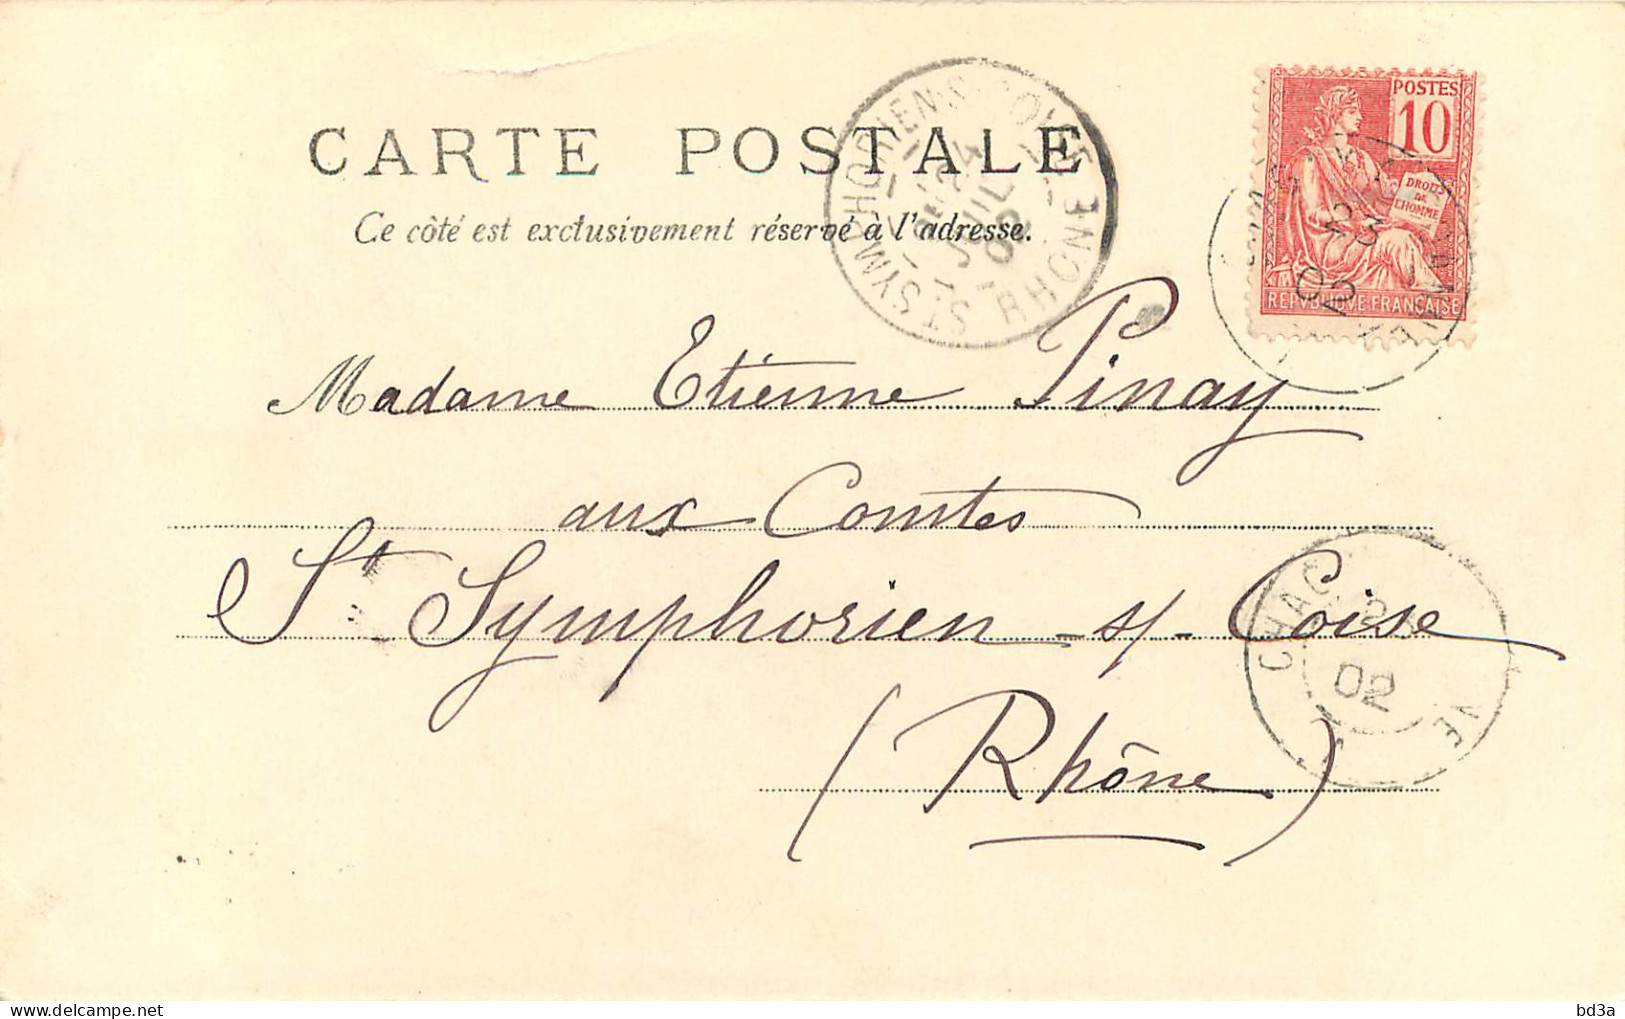 CARTE POSTALE
Ce côté est exclusivement réservé à l'adresse.
POSTES
10
DROITS
DE
L'HOMME
REPVBLIQVE FRANÇAISE
23
02
ST SYMPHORIEN S. COISE
24
JUIL
02
RHONE
Madame Etienne Pinay
aux Comtes
St Symphorien s/ Coise
(Rhône)
02
bd3a